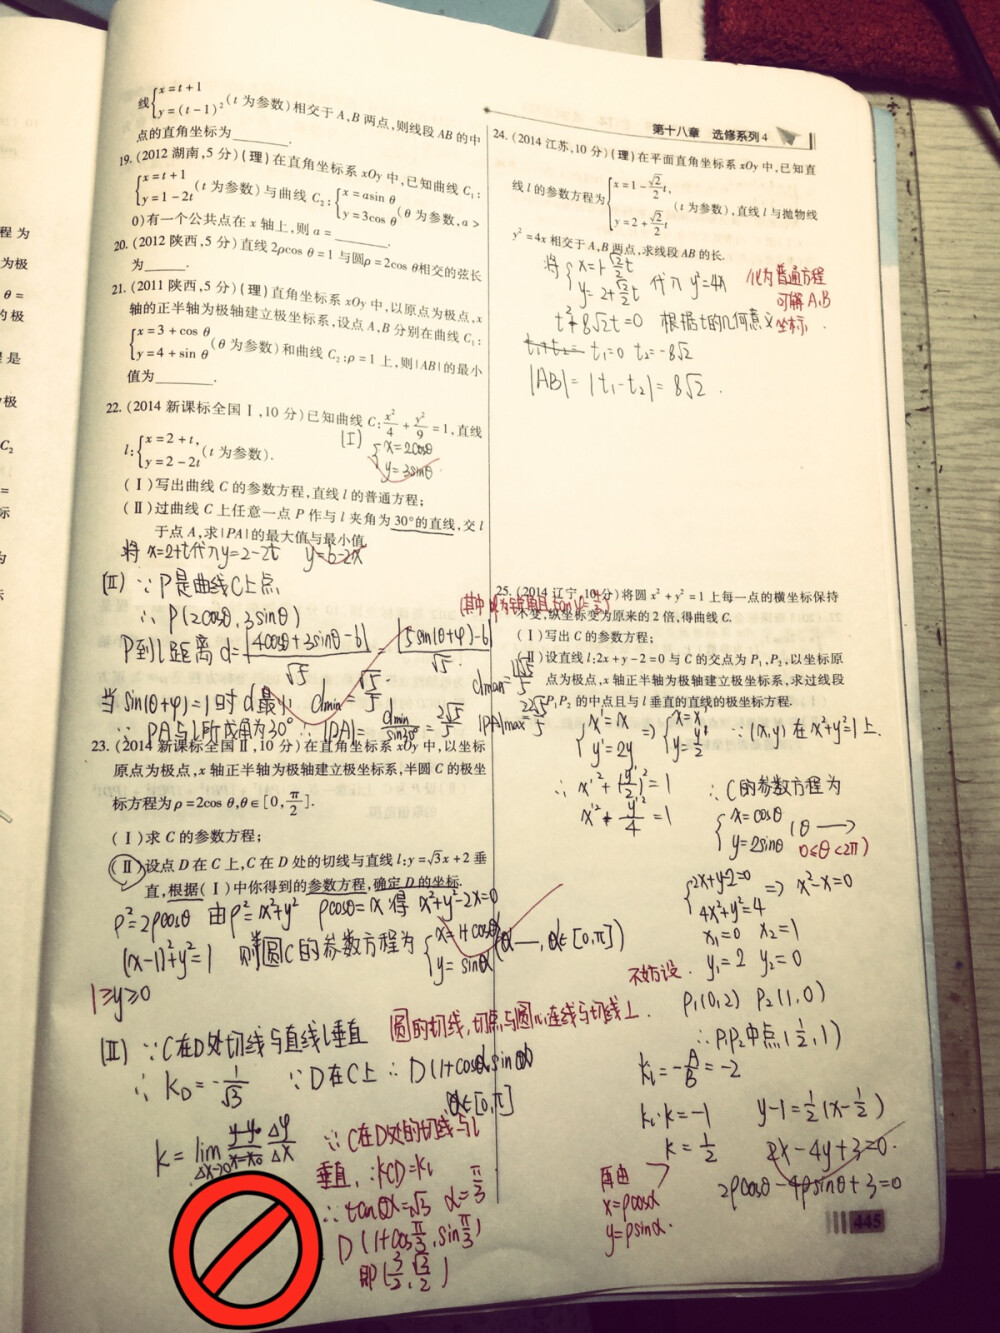 程 为
为极
θ =
的极
是
极
C₂
=
标
为
线{x=t+1
y=(t-1)²(t 为参数)相交于 A,B 两点,则线段 AB 的中
点的直角坐标为________.
19.(2012 湖南,5 分)(理)在直角坐标系 xOy 中,已知曲线 C₁:
{x=t+1
y=1-2t(t 为参数)与曲线 C₂:{x=asin θ
y=3cos θ(θ 为参数,a>
0)有一个公共点在 x 轴上,则 a=________.
20.(2012 陕西,5 分)直线 2ρcos θ=1 与圆ρ=2cos θ相交的弦长
为______.
21.(2011 陕西,5 分)(理)直角坐标系 xOy 中,以原点为极点,x
轴的正半轴为极轴建立极坐标系,设点 A,B 分别在曲线 C₁:
{x=3+cos θ
y=4+sin θ(θ 为参数)和曲线 C₂:ρ=1 上,则|AB|的最小
值为________.
22.(2014 新课标全国Ⅰ,10 分)已知曲线 C:x²/4+y²/9=1,直线
l:{x=2+t,
y=2-2t(t 为参数).
(I) {x=2cosθ
y=3sinθ
(Ⅰ)写出曲线 C 的参数方程,直线 l 的普通方程;
(Ⅱ)过曲线 C 上任意一点 P 作与 l 夹角为 30°的直线,交 l
于点 A,求|PA|的最大值与最小值.
将 x=2+t代入y=2-2t y=6-2x
(II) ∵ P是曲线C上点
∴ P(2cosθ,3sinθ)
P到l距离 d=|4cosθ+3sinθ-6|/√5=|5sin(θ+φ)-6|/√5
当 sin(θ+φ)=1时 d最小 dmin=√5/5.
∵ PA与l所成角为30° ∴ |PA|=dmin/sin30°=2√5/5
dmax=11√5/5
|PA|max=22√5/5
23.(2014 新课标全国Ⅱ,10 分)在直角坐标系 xOy 中,以坐标
原点为极点,x 轴正半轴为极轴建立极坐标系,半圆 C 的极坐
标方程为 ρ=2cos θ,θ∈[0,π/2].
(Ⅰ)求 C 的参数方程;
(Ⅱ)设点 D 在 C 上,C 在 D 处的切线与直线 l:y=√3x+2 垂
直,根据(Ⅰ)中你得到的参数方程,确定 D 的坐标.
ρ²=2ρcosθ 由ρ²=x²+y² ρcosθ=x 得 x²+y²-2x=0
(x-1)²+y²=1 则半圆C的参数方程为{x=1+cosα
y=sinα(α—,α∈[0,π])
1≥y≥0
(II) ∵C在D处切线与直线l垂直
圆的切线,切点与圆心连线与切线⊥.
∴ kD=-1/√3 ∵D在C上 ∴ D(1+cosα,sinα)
α∈[0,π]
k=lim Δx→0 y-y₀/x-x₀ Δy/Δx
∵C在D处的切线与l
垂直,∴kCD=kl
∴tanα=√3 α=π/3
D(1+cosπ/3,sinπ/3)
即(3/2,√3/2)
第十八章 选修系列 4
24.(2014 江苏,10 分)(理)在平面直角坐标系 xOy 中,已知直
线 l 的参数方程为{x=1-√2/2t,
y=2+√2/2t(t 为参数),直线 l 与抛物线
y²=4x 相交于 A,B 两点,求线段 AB 的长.
将{x=1-√2/2t
y=2+√2/2t 代入 y²=4x
化为普通方程
可解A,B
坐标.
t²+8√2t=0 根据t的几何意义
t₁+t₂= t₁=0 t₂=-8√2
|AB|=|t₁-t₂|=8√2.
25.(2014 辽宁,10 分)将圆 x²+y²=1 上每一点的横坐标保持
不变,纵坐标变为原来的 2 倍,得曲线 C.
(Ⅰ)写出 C 的参数方程;
(Ⅱ)设直线 l:2x+y-2=0 与 C 的交点为 P₁,P₂,以坐标原
点为极点,x 轴正半轴为极轴建立极坐标系,求过线段
P₁P₂ 的中点且与 l 垂直的直线的极坐标方程.
{x'=x
y'=2y ⇒ {x=x'
y=y'/2 ∵(x,y)在x²+y²=1上.
∴ x'²+(y'/2)²=1
x'²+y'²/4=1
∴C的参数方程为
{x=cosθ
y=2sinθ (θ—
0≤θ<2π)
{2x+y-2=0
4x²+y²=4 ⇒ x²-x=0
x₁=0 x₂=1
不妨设. y₁=2 y₂=0
P₁(0,2) P₂(1,0)
∴P₁P₂中点(1/2,1)
kl=-A/B=-2
kl·k=-1 y-1=1/2(x-1/2)
k=1/2 2x-4y+3=0.
再由
x=ρcosα
y=ρsinα.
2ρcosθ-4ρsinθ+3=0
445